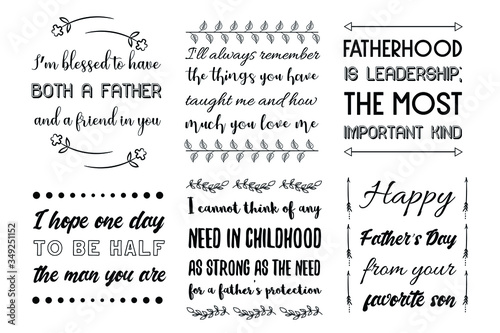 I'm blessed to have
BOTH A FATHER
and a friend in you
I'll always remember
the things you have
taught me and how
much you love me
FATHERHOOD
IS LEADERSHIP;
THE MOST
IMPORTANT KIND
I hope one day
TO BE HALF
the man you are
I cannot think of any
NEED IN CHILDHOOD
AS STRONG AS THE NEED
for a father's protection
Happy
Father's Day
from your
favorite son
Adobe Stock | #349251152